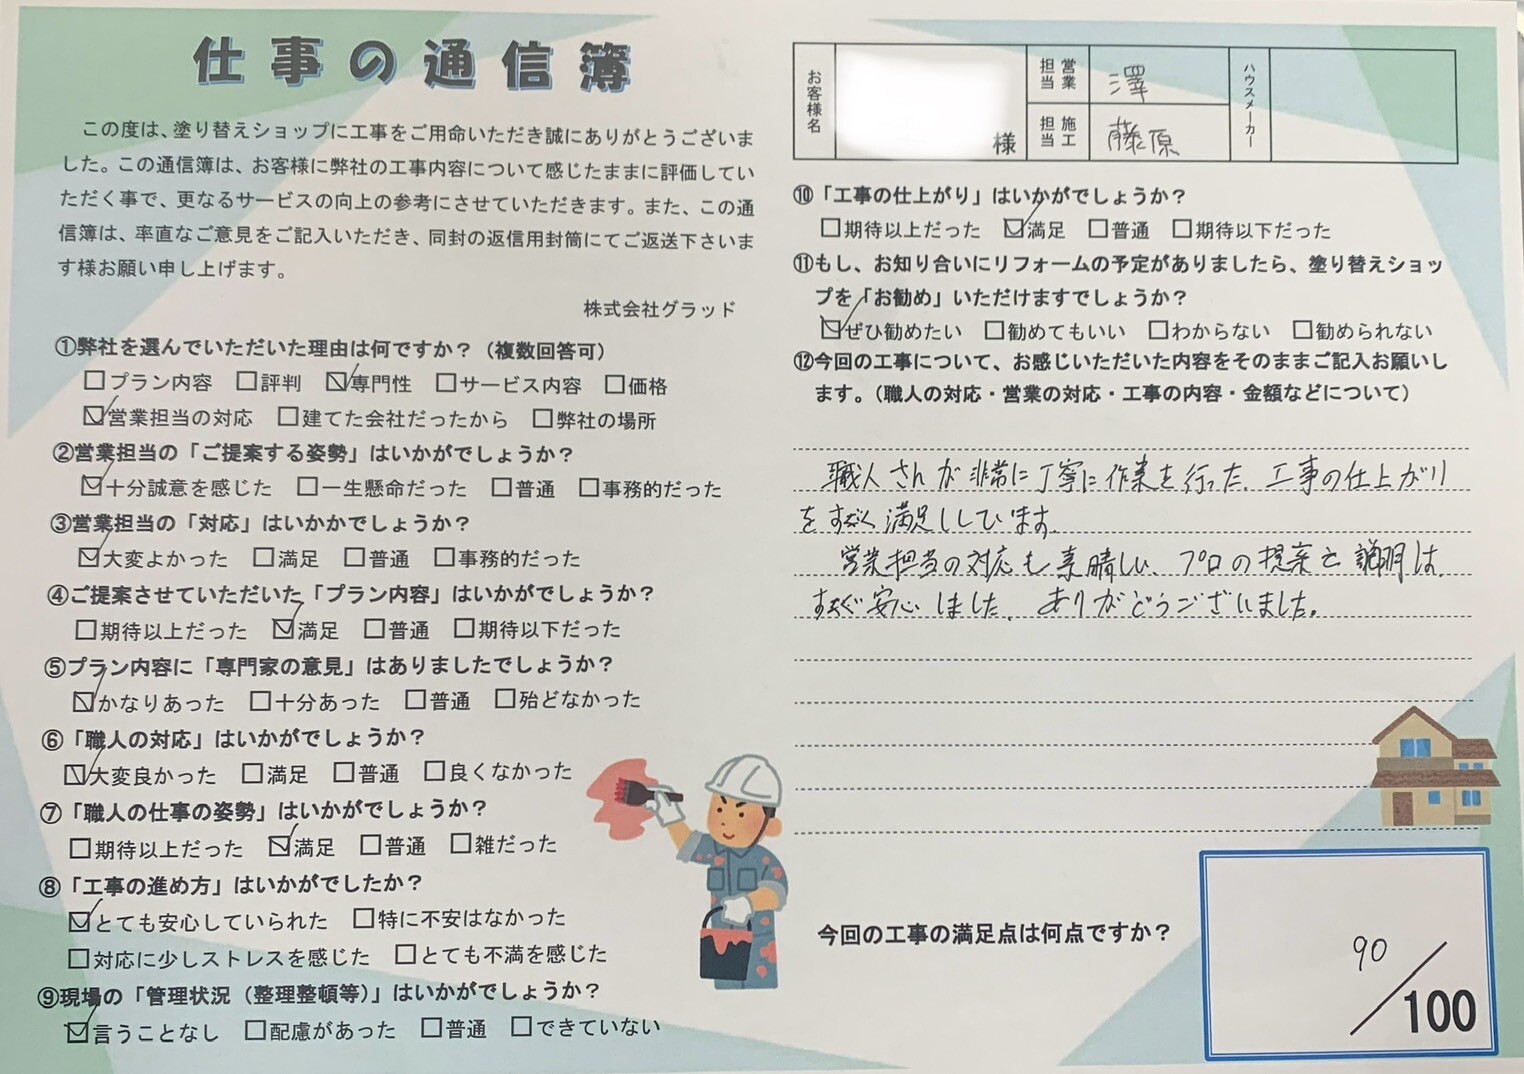 仕事の通信簿
この度は、塗り替えショップに工事をご用命いただき誠にありがとうございま
した。この通信簿は、お客様に弊社の工事内容について感じたままに評価してい
ただく事で、更なるサービスの向上の参考にさせていただきます。また、この通
信簿は、率直なご意見をご記入いただき、同封の返信用封筒にてご返送下さいま
す様お願い申し上げます。
株式会社グラッド
①弊社を選んでいただいた理由は何ですか？（複数回答可）
□プラン内容 □評判 ☑専門性 □サービス内容 □価格
☑営業担当の対応 □建てた会社だったから □弊社の場所
②営業担当の「ご提案する姿勢」はいかがでしょうか？
☑十分誠意を感じた □一生懸命だった □普通 □事務的だった
③営業担当の「対応」はいかかでしょうか？
☑大変よかった □満足 □普通 □事務的だった
④ご提案させていただいた「プラン内容」はいかがでしょうか？
□期待以上だった ☑満足 □普通 □期待以下だった
⑤プラン内容に「専門家の意見」はありましたでしょうか？
☑かなりあった □十分あった □普通 □殆どなかった
⑥「職人の対応」はいかがでしょうか？
☑大変良かった □満足 □普通 □良くなかった
⑦「職人の仕事の姿勢」はいかがでしょうか？
□期待以上だった ☑満足 □普通 □雑だった
⑧「工事の進め方」はいかがでしたか？
☑とても安心していられた □特に不安はなかった
□対応に少しストレスを感じた □とても不満を感じた
⑨現場の「管理状況（整理整頓等）」はいかがでしょうか？
☑言うことなし □配慮があった □普通 □できていない
お客様名 様 営業担当 澤 ハウスメーカー
施工担当 藤原
⑩「工事の仕上がり」はいかがでしょうか？
□期待以上だった ☑満足 □普通 □期待以下だった
⑪もし、お知り合いにリフォームの予定がありましたら、塗り替えショッ
プを「お勧め」いただけますでしょうか？
☑ぜひ勧めたい □勧めてもいい □わからない □勧められない
⑫今回の工事について、お感じいただいた内容をそのままご記入お願いし
ます。（職人の対応・営業の対応・工事の内容・金額などについて）
職人さんが非常に丁寧に作業を行った、工事の仕上がり
をすごく満足しています。
営業担当の対応も素晴しい、プロの提案と説明は
すごく安心しました、ありがどうございました。
今回の工事の満足点は何点ですか？
90/100